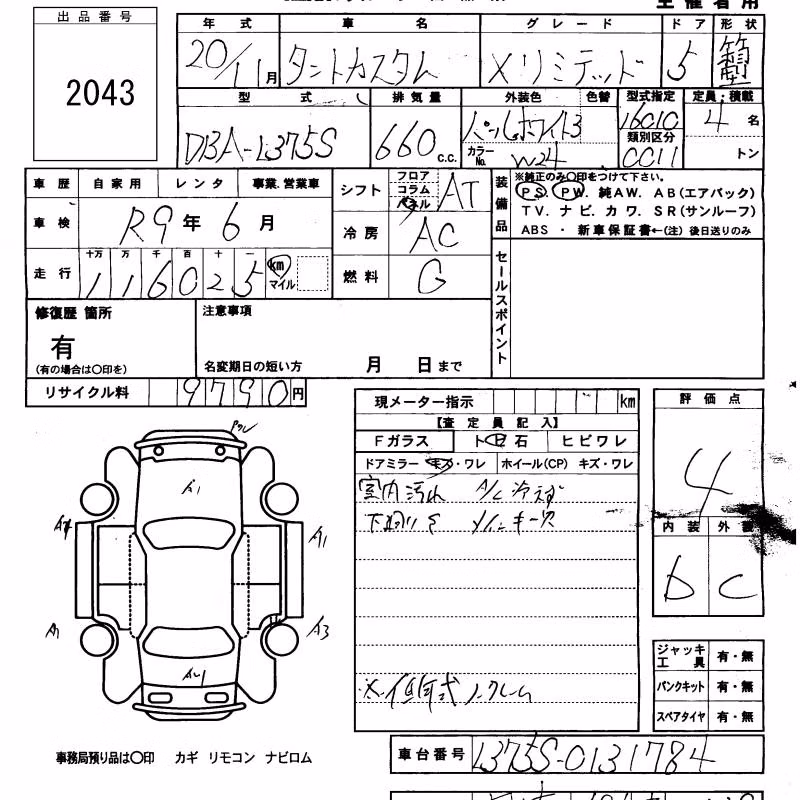 主催者用
出品番号
2043
年式 車名 グレード ドア 形状
20/11月 タントカスタム Xリミテッド 5 箱型
型式 排気量 外装色 色替 型式指定 定員・積載
DBA-L375S 660c.c. パールホワイト3 16010 4名
カラーNo. W24 類別区分 0011 トン
車歴 自家用 レンタ 事業.営業車
シフト フロア コラム パネル AT
装備品
※純正のみ〇印をつけて下さい。
PS. PW. 純AW. AB(エアバック)
TV. ナビ. カワ. SR(サンルーフ)
ABS ・ 新車保証書←(注) 後日送りのみ
車検 R9年6月
冷房 AC
走行 十万 万 千 百 十 一
116025 km マイル
燃料 G
セールスポイント
修復歴 箇所
有
(有の場合は〇印を)
注意事項
名変期日の短い方 月 日まで
リサイクル料 9790円
現メーター指示 km
【査定員記入】
Fガラス トビ石 ヒビワレ
ドアミラー キズ・ワレ ホイール(CP) キズ・ワレ
室内汚れ A/C冷えず
下廻りサ メインキー欠
※低年式ノークレーム
評価点
4
内装 外装
b c
A1
A1
A1
A3
ジャッキ工具 有・無
パンクキット 有・無
スペアタイヤ 有・無
事務局預り品は〇印 カギ リモコン ナビロム
車台番号 L375S-0131784